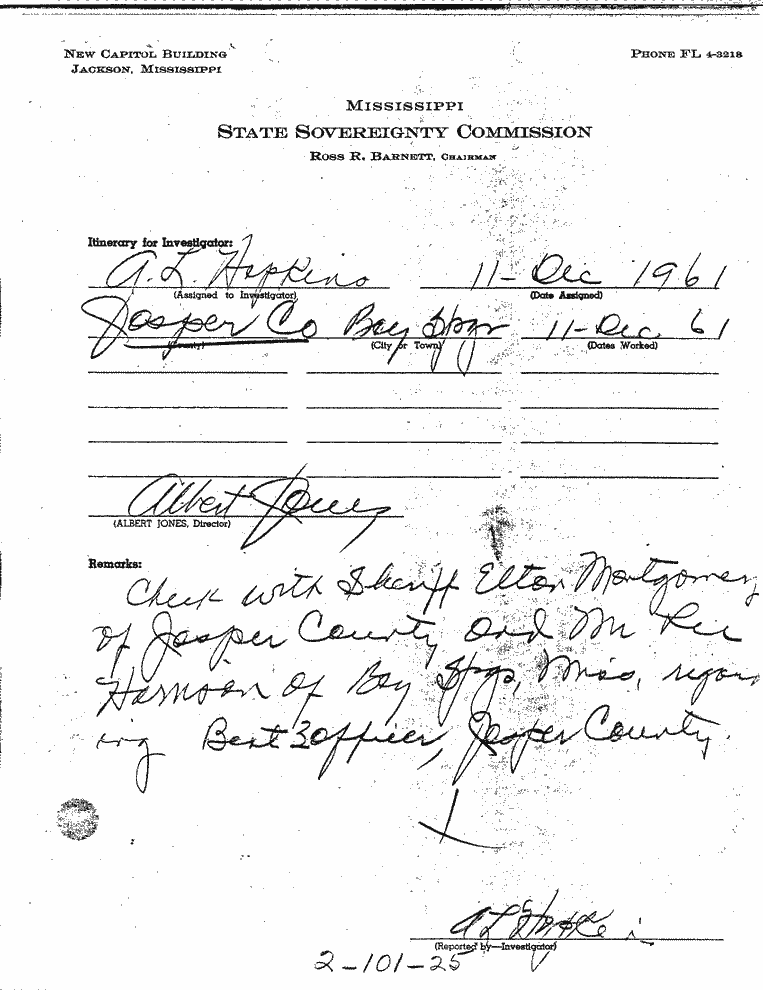 NEW CAPITOL BUILDING
JACKSON, MISSISSIPPI
PHONE FL 4-3218
MISSISSIPPI
STATE SOVEREIGNTY COMMISSION
ROSS R. BARNETT, CHAIRMAN
Itinerary for Investigator:
A. L. Hopkins 11-Dec 1961
(Assigned to Investigator) (Date Assigned)
Jasper Co Bay Spgs 11-Dec 61
(County) (City or Town) (Dates Worked)
Albert Jones
(ALBERT JONES, Director)
Remarks:
Check with Sheriff Elton Montgomery
of Jasper County and Mr
of Bay Spgs, Miss, regard
ing Beat 3 officer, Jasper County.
A L Hopkins
(Reported by—Investigator)
2-101-25